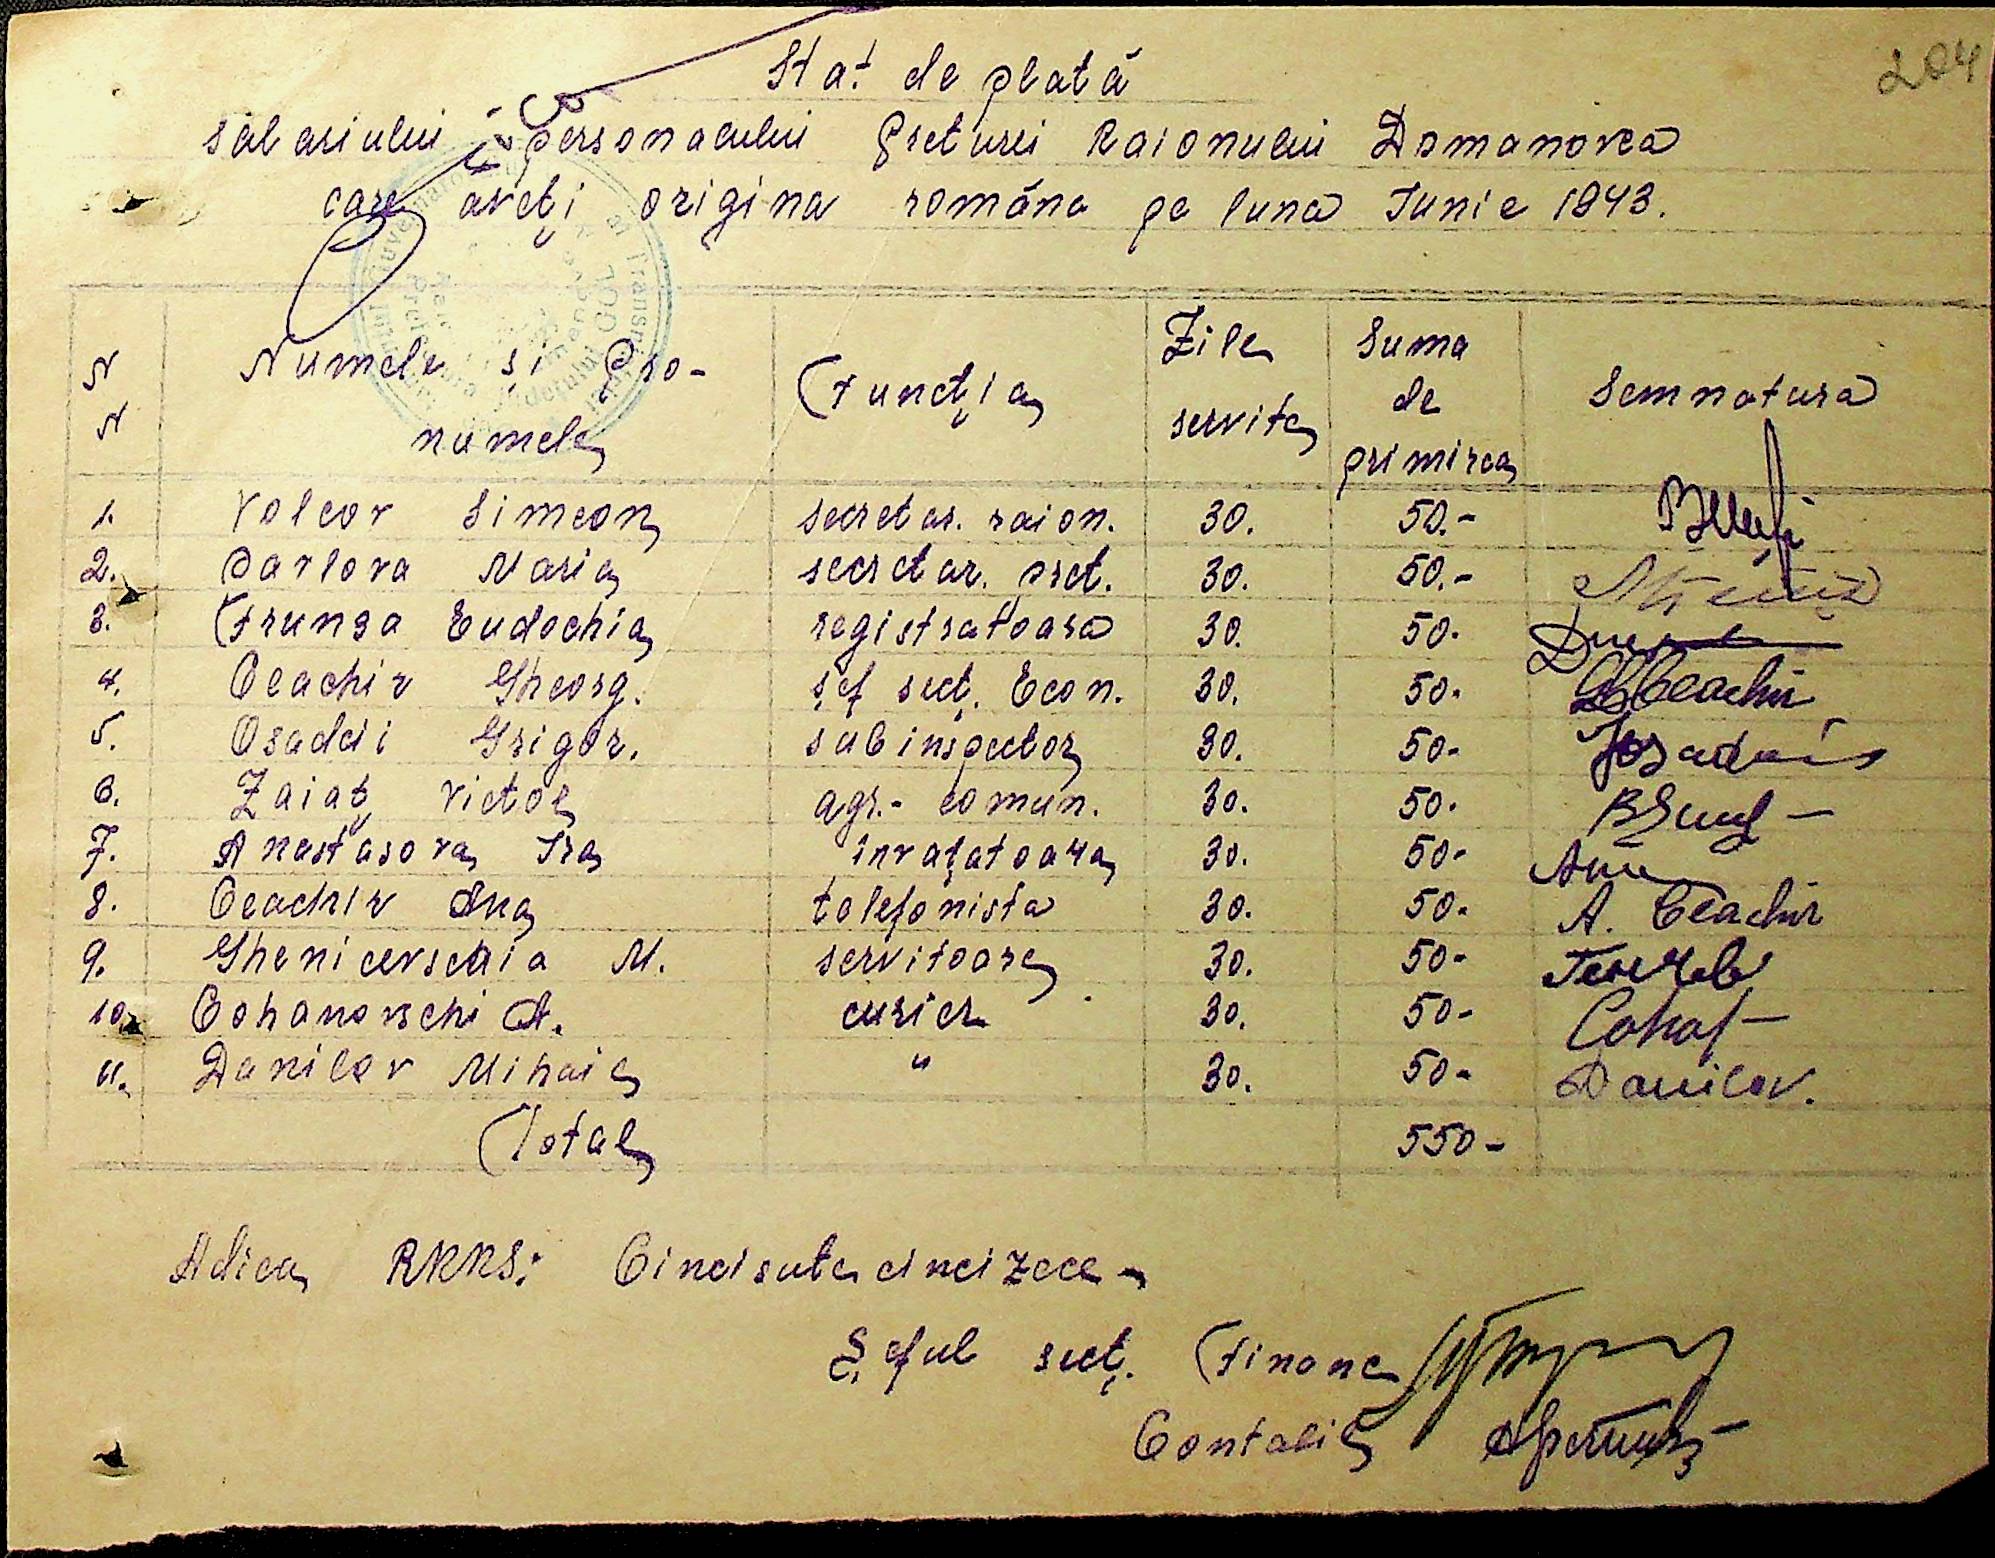 204
Stat de plată
salariului personalului Preturei Raionului Domanovca
care aveți origina română pe luna Iunie 1943.
N N Numele și Pronumele Funcția Zile servite Suma de primirea Semnatura
1. Volcov Simeon secretar. raion. 30. 50.-
2. Pavlova Maria secretar. pret. 30. 50.-
3. Frunza Eudochia registratoara 30. 50.
4. Ceachir Gheorg. șef secț. Econ. 30. 50. Gh Ceachir
5. Osadcii Grigor. subinspector 30. 50-
6. Zaiaț Victor agr.- comun. 30. 50.
7. Anastasova Ira învațatoara 30. 50-
8. Ceachir Ana telefonista 30. 50. A. Ceachir
9. Ghenicevscaia M. servitoare 30. 50-
10. Cohanovschi A. curier 30. 50- Cohat-
11. Danilov Mihail " 30. 50- Danilov.
Total 550-
Adica RKKS: Cincisute cincizece -
Șeful secț. Finance
Contabil